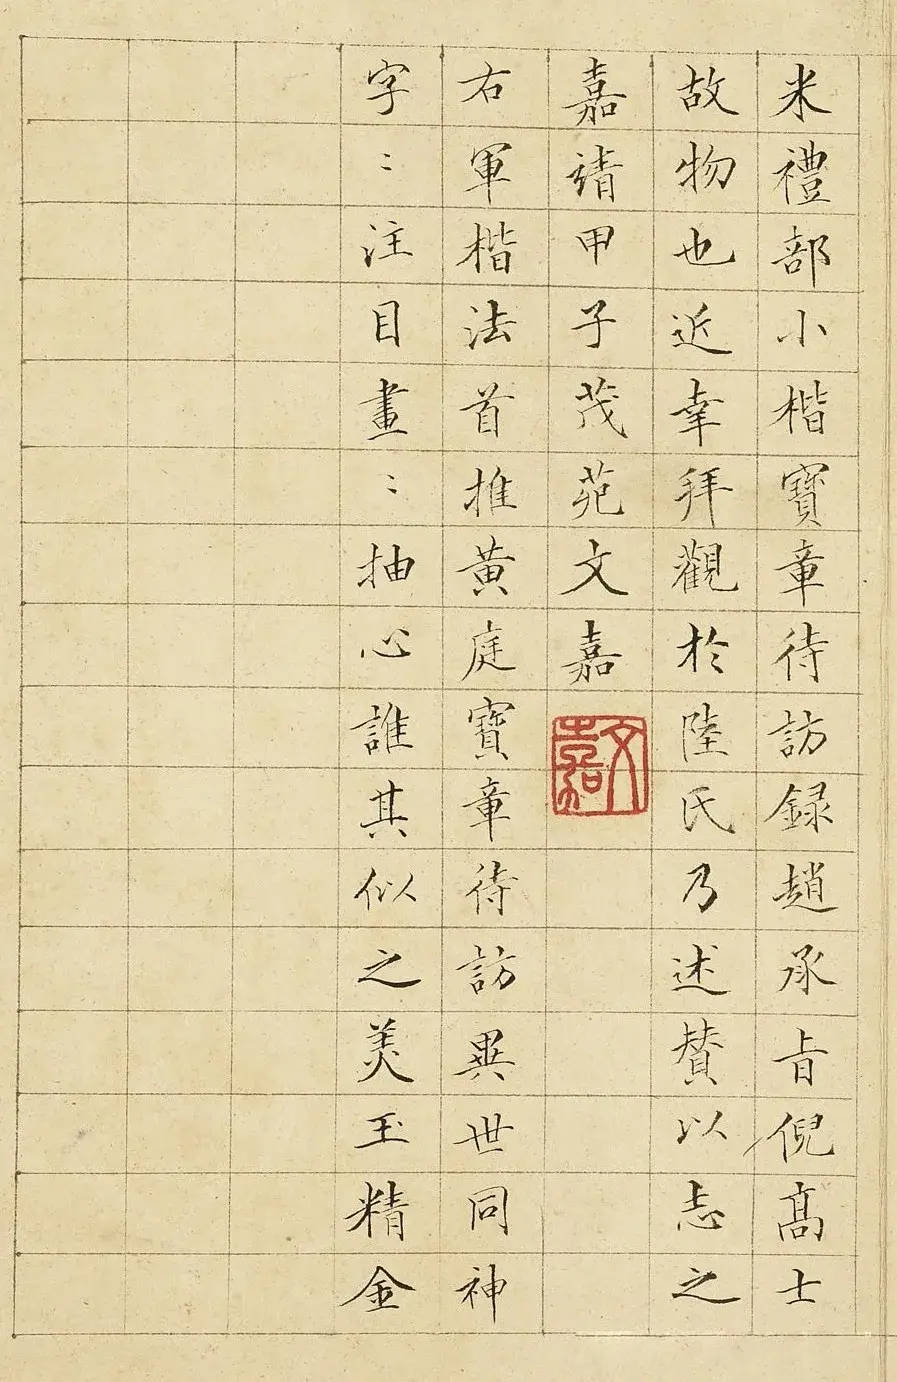 米禮部小楷寶章待訪録趙承旨倪高士
故物也近幸拜觀於陸氏乃述賛以志之
嘉靖甲子茂苑文嘉
文嘉
右軍楷法首推黄庭寶章待訪異世同神
字〻注目畫〻抽心誰其似之美玉精金